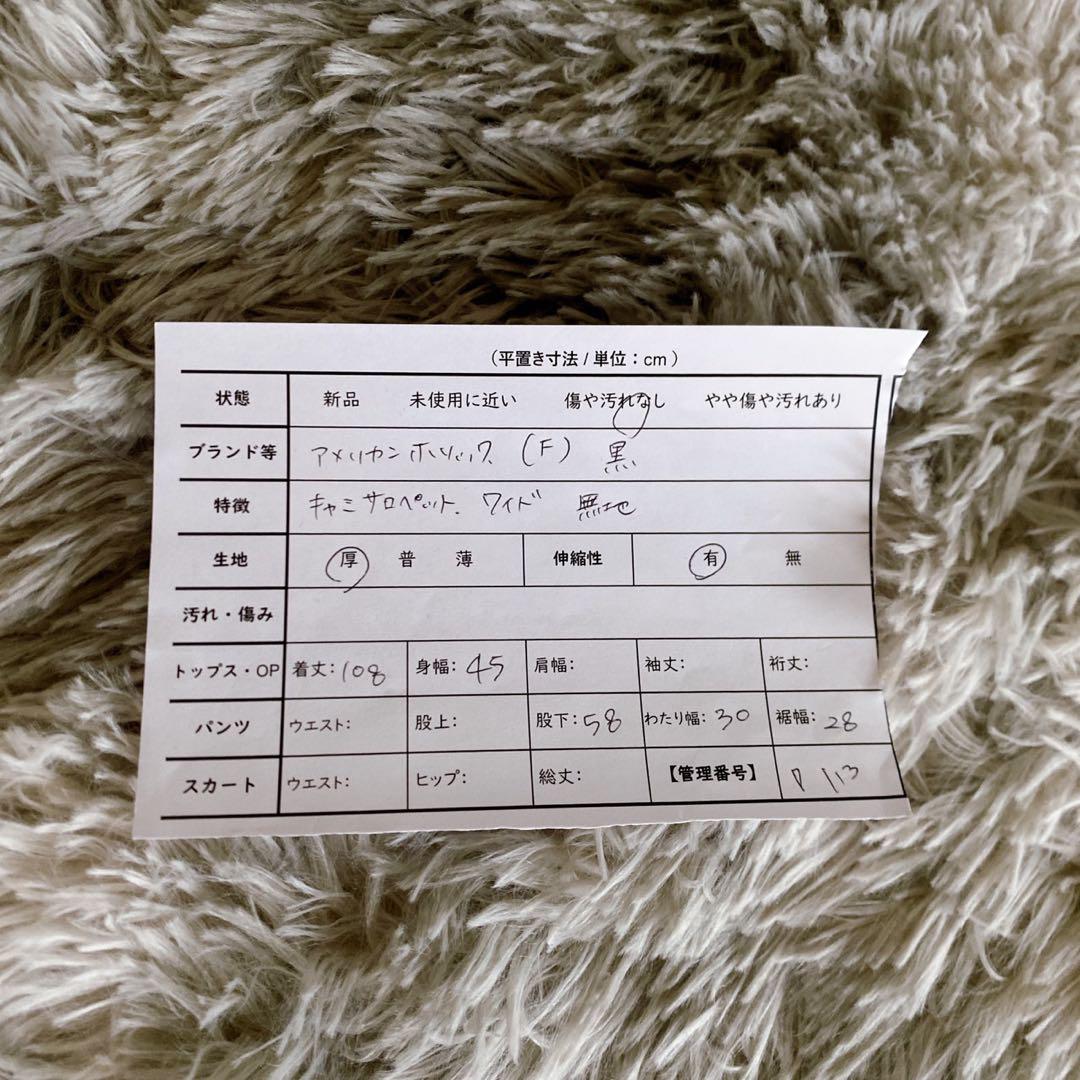 （平置き寸法 / 単位：cm ）
状態 新品 未使用に近い 傷や汚れなし やや傷や汚れあり
ブランド等 アメリカンホリック (F) 黒
特徴 キャミサロペット. ワイド 無地
生地 厚 普 薄 伸縮性 有 無
汚れ・傷み
トップス・OP 着丈：108 身幅：45 肩幅： 袖丈： 裄丈：
パンツ ウエスト： 股上： 股下：58 わたり幅：30 裾幅：28
スカート ウエスト： ヒップ： 総丈： 【管理番号】 P 113